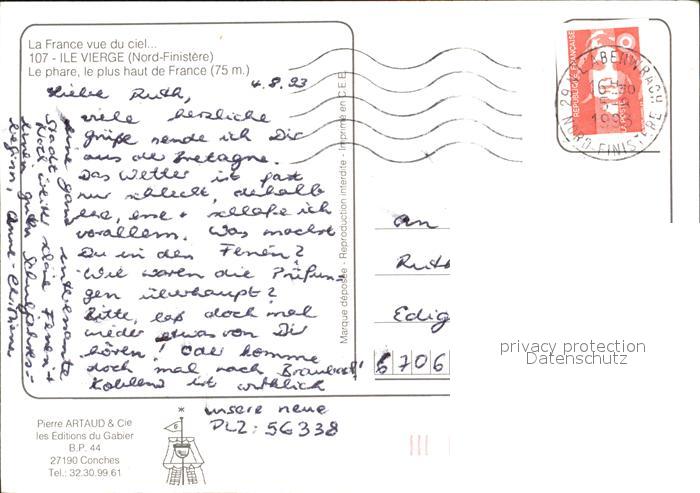 La France vue du ciel...
107 - ILE VIERGE (Nord-Finistère)
Le phare, le plus haut de France (75 m.)
4.8.93
Liebe Ruth,
viele herzliche
grüße sende ich Dir
aus der Bretagne.
Das Wetter ist fast
nur schlecht, deshalb
lese, esse + schlafe ich
vorallem. Was machst
Du in den Ferien?
Wie waren die Prüfun-
gen überhaupt?
Bitte, laß doch mal
wieder etwas von Dir
hören! Oder komme
doch mal nach Braubach!
Koblenz ist wirklich
eine ganz interessante
Stadt.
Noch weiter schöne Ferien +
einen guten Schuljahres-
beginn, Anne-Christiane
unsere neue
PLZ: 56338
Marque déposée - Reproduction interdite - Imprimé en C.E.E.
REPUBLIQUE FRANCAISE
29 L'ABERWRACH
16H30
1993
NORD-FINISTERE
An
Ruth
Edig
6706
privacy protection
Datenschutz
Pierre ARTAUD & Cie
les Editions du Gabier
B.P. 44
27190 Conches
Tel.: 32.30.99.61